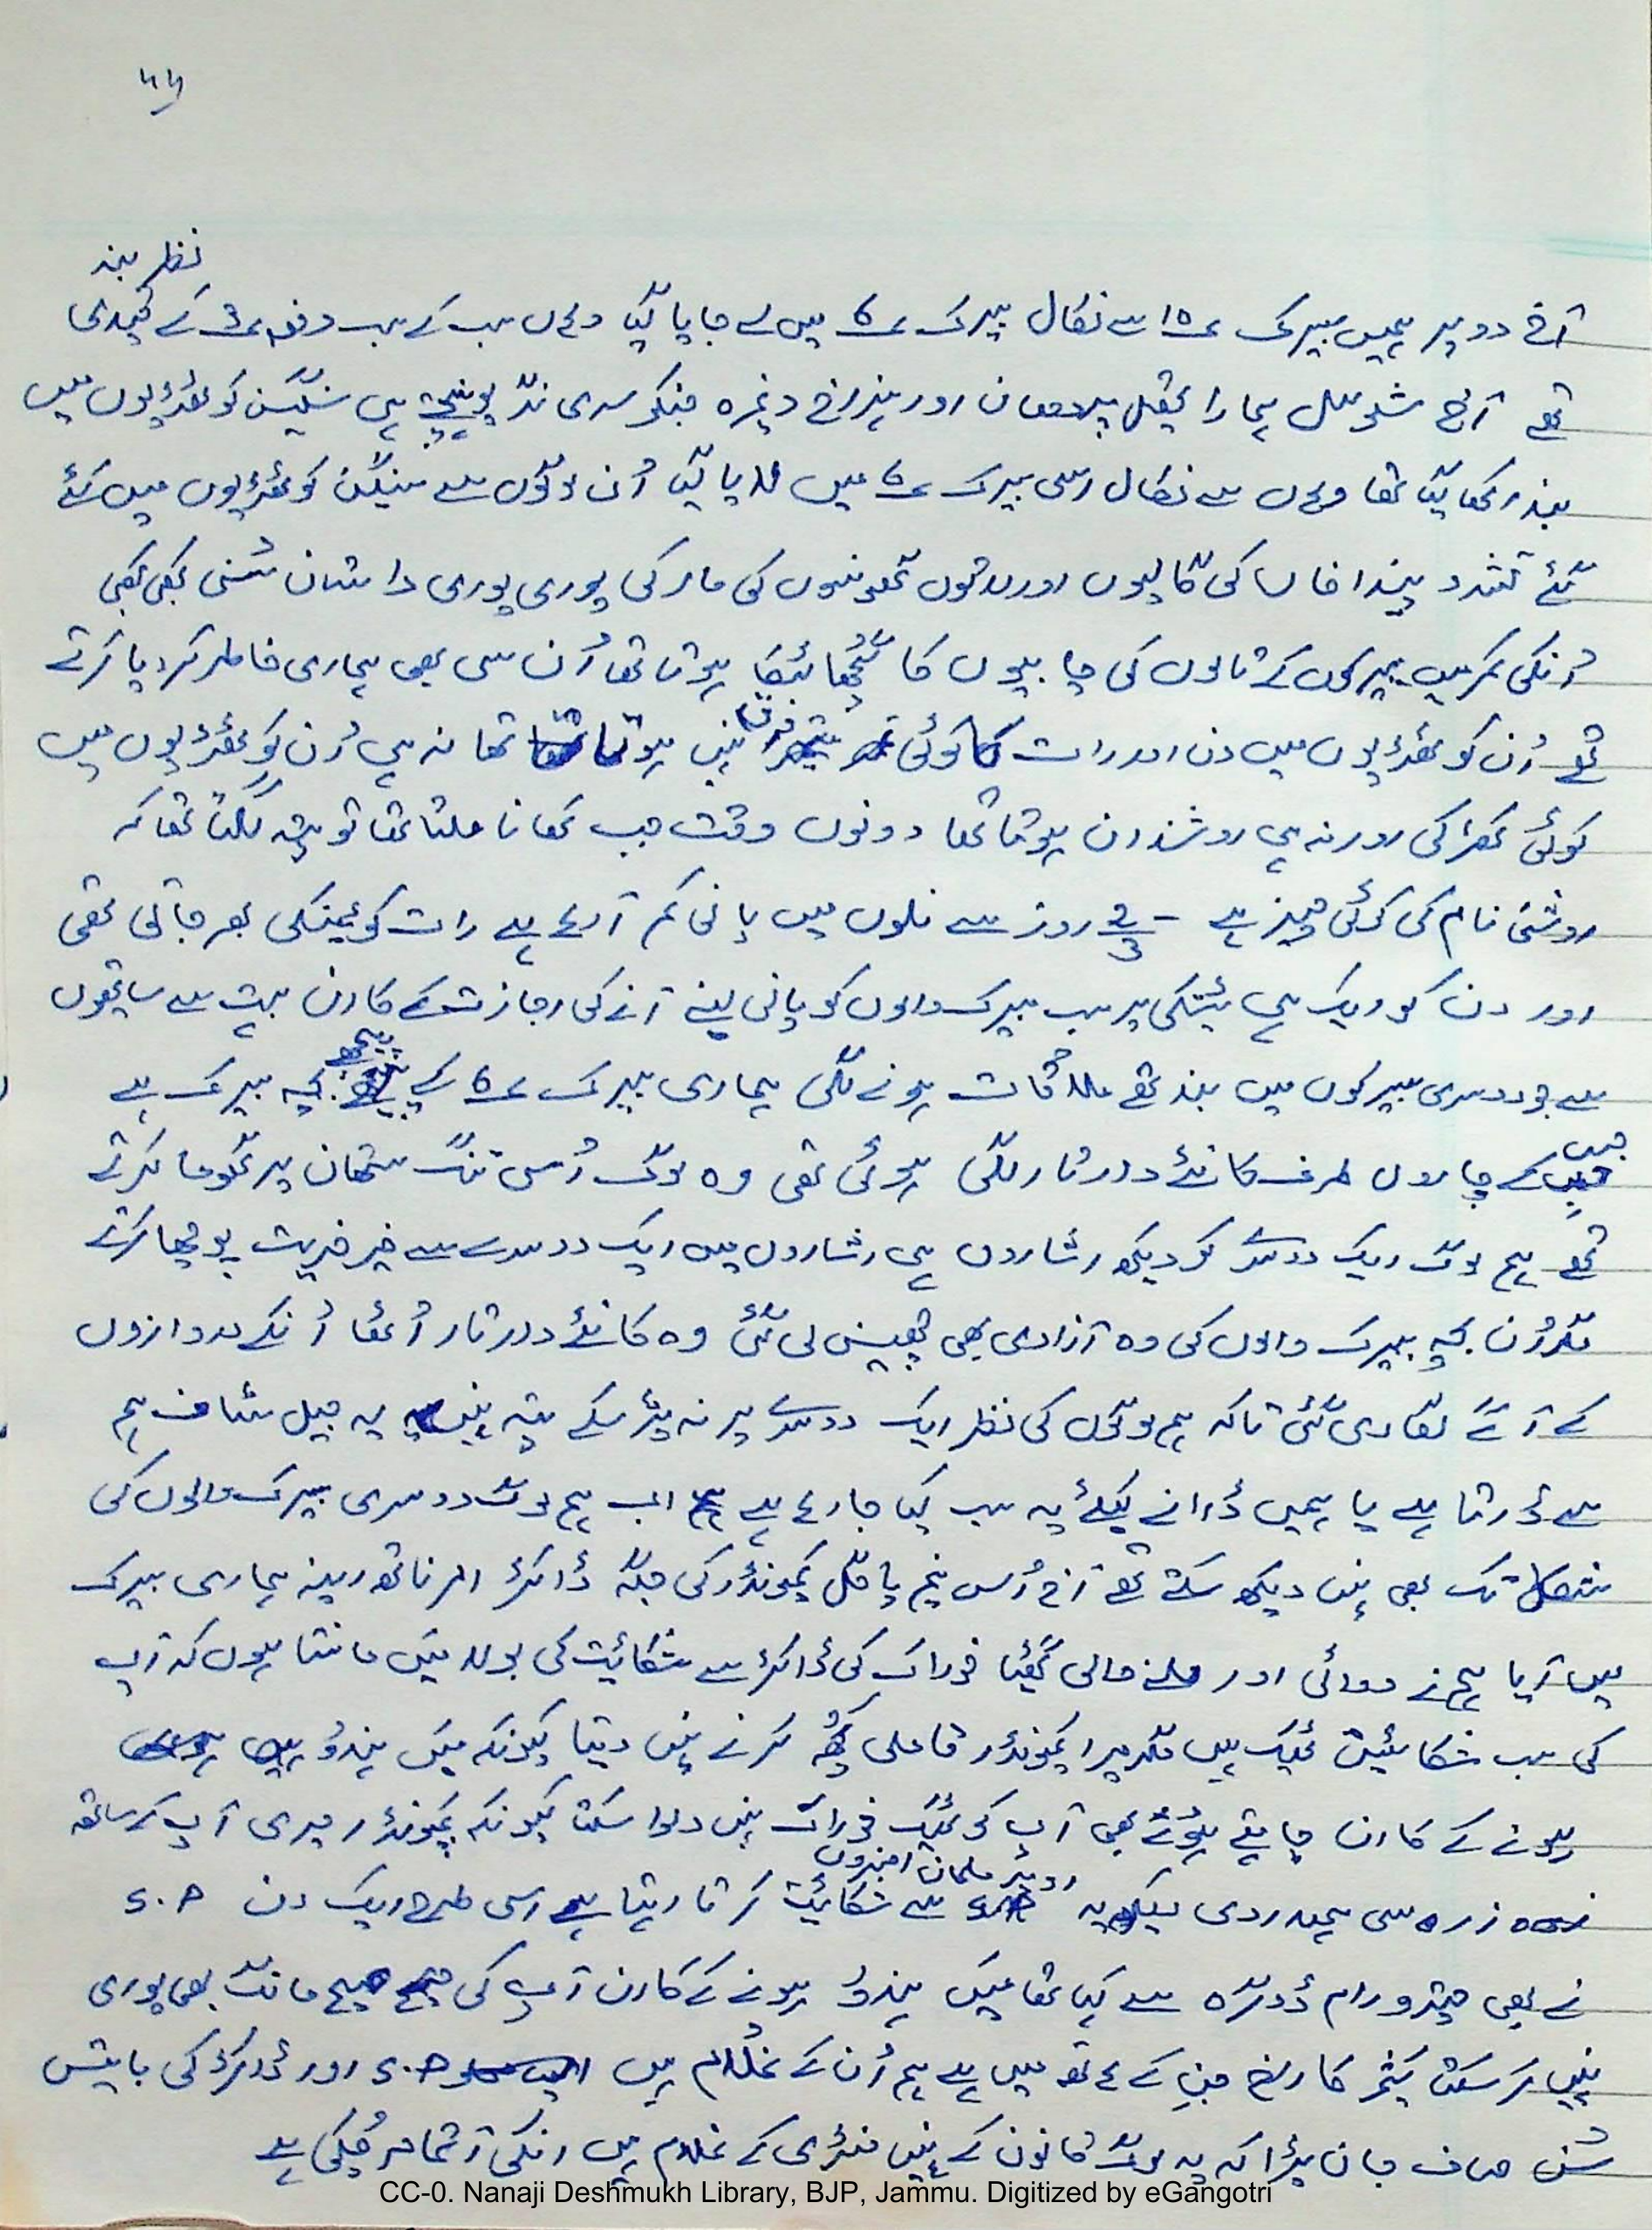 نظر بند
آج دوپہر ہمیں بیرک ۱۵ سے نکال بیرک ۶ میں لے جایا گیا وہاں سب کے سب دفعہ ۳ کے قیدی
تھے آج شو مل ہمارا پردھان اور وغیرہ جنکو سری نگر ہی سنگین کوٹھڑیوں میں
بند رکھا گیا تھا وہاں سے نکال اسی بیرک ۶ میں لایا گیا اُن لوگوں سے سنگین کوٹھڑیوں میں کئے
گئے تشدد پنڈا خاں کی گالیوں اور لاتوں گھونسوں کی مار کی پوری پوری داستان سُنی کبھی کبھی
اُنکی کمر میں بیرکوں کے تالوں کی چابیوں کا گُچھا ہوتا تھا اُن سے بھی ہماری خاطر کر دیا کرتے
تھے اُن کوٹھڑیوں میں دن اور رات کا کوئی فرق نہیں ہوتا تھا نہ ہی اُن کوٹھڑیوں میں
کوئی کھڑکی اور نہ ہی روشندان ہوتا تھا دونوں وقت جب کھانا ملتا تھا تو پتہ لگتا تھا کہ
روشنی نام کی کوئی چیز ہے - 2/3 روز سے نلوں میں پانی کم آ رہا ہے رات کو ٹینکی بھر جاتی تھی
اور دن کو ایک ہی ٹینکی پر سب بیرک والوں کو پانی لینے آنے کی اجازت کے کارن بہت سے ساتھیوں
سے جو دوسری بیرکوں میں بند تھے ملاقات ہونے لگی ہماری بیرک ۶ کے پیچھے بچہ بیرک ہے
جس کے چاروں طرف کانٹے دار تار لگی ہوئی تھی وہ لوگ اُسی تنگ ستھان پر گھوما کرتے
تھے ہم لوگ ایک دوسرے کو دیکھ اشاروں ہی اشاروں میں ایک دوسرے سے خیر خیریت پوچھا کرتے
مگر اُن بچہ بیرک والوں کی وہ آزادی بھی چھین لی گئی وہ کانٹے دار تار اُٹھا اُنکے دروازوں
کے آگے لگا دی گئی تاکہ ہم لوگوں کی نظر ایک دوسرے پر نہ پڑ سکے پتہ نہیں یہ جیل سٹاف ہم
سے ڈرتا ہے یا ہمیں ڈرانے کیلئے یہ سب کیا جا رہا ہے اب ہم لوگ دوسری بیرک والوں کی
شکل تک بھی نہیں دیکھ سکتے تھے آج اُس نیم پاگل کمپونڈر کی جگہ ڈاکٹر امرناتھ رینہ ہماری بیرک
میں آیا ہم نے دوائی اور ملنے والی گھٹیا خوراک کی ڈاکٹر سے شکائیت کی بولا میں مانتا ہوں کہ آپ
کی سب شکائیتیں ٹھیک ہیں مگر میرا کمپونڈر قاملی کچھ کرنے نہیں دیتا کیونکہ میں ہندُو
ہونے کے کارن چاہتے ہوئے بھی آپ کو ٹھیک خوراک نہیں دلوا سکتا کیونکہ کمپونڈر میری آپ کے ساتھ
ذرہ سی ہمدردی دیکھ یہ دیگر مسلمان افسروں سے شکائیت کرتا رہتا ہے اسی طرح ایک دن S.P
نے بھی رام ڈوگرہ سے کہا تھا میں ہندُو ہونے کے کارن آپ کی صحیح مانگ بھی پوری
نہیں کر سکتا جن کے ہاتھ میں ہے ہم اُن کے غُلام ہیں S.P اور ڈاکٹر کی باتیں
سُن صاف جان پڑا کہ یہ لوگ قانون کے نہیں منتری کے غلام ہیں انکی آتما مر چُکی ہے
CC-0. Nanaji Deshmukh Library, BJP, Jammu. Digitized by eGangotri